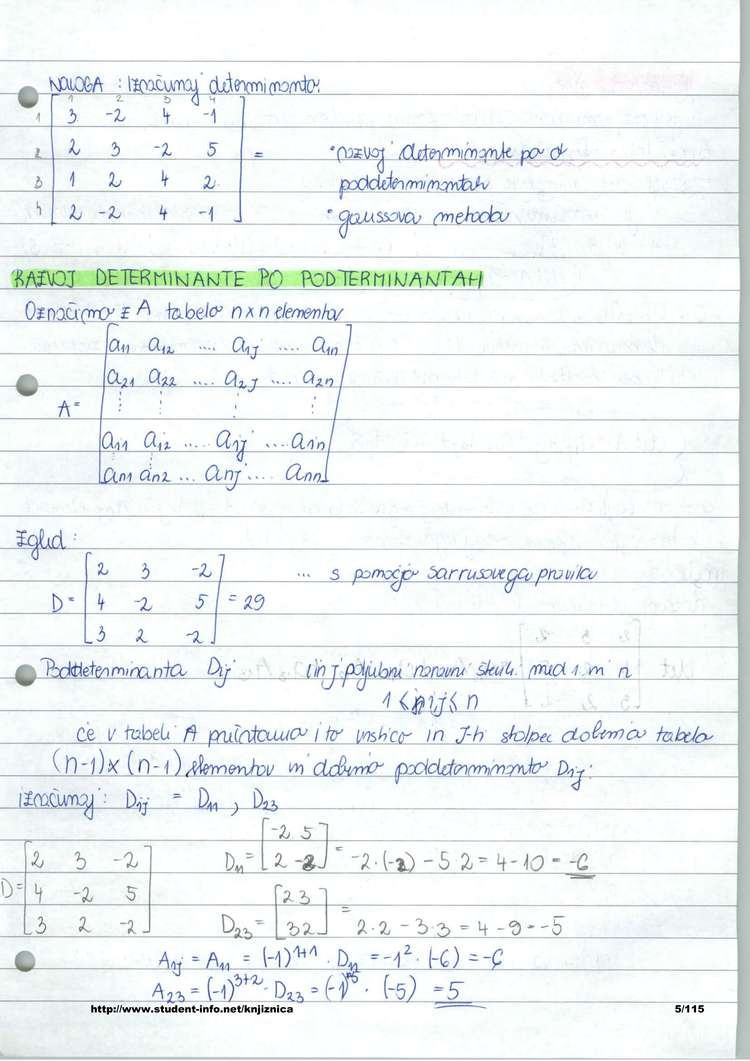 NALOGA : Izračunaj determinanto.
1 2 3 4
1 3 -2 4 -1
2 2 3 -2 5 = • razvoj determinante po d
3 1 2 4 2 poddeterminantah
4 2 -2 4 -1 • gaussova metoda
RAZVOJ DETERMINANTE PO PODTERMINANTAH
Označimo z A tabelo n x n elementov
a11 a12 .... a1j .... a1n
a21 a22 .... a2j .... a2n
A=
ai1 ai2 ..... aij ..... ain
an1 an2 ... anj .... ann
Zgled:
2 3 -2 ... s pomočjo sarrusovega pravila
D= 4 -2 5 = 29
3 2 -2
Poddeterminanta Dij i in j poljubni naravni števili med 1 in n
1 ≤ i, j ≤ n
če v tabeli A prečrtamo i to vrstico in J-ti stolpec dobimo tabelo
(n-1) x (n-1) elementov in dobimo poddeterminanto Dij.
izračunaj: Dij = D11 , D23
-2 5
2 3 -2 D11 = 2 -2 = -2·(-2) - 5·2 = 4-10 = -6
D= 4 -2 5 2 3
3 2 -2 D23 = 3 2 = 2·2 - 3·3 = 4 - 9 = -5
Aij = A11 = (-1)^1+1 · D11 = -1^2 · (-6) = -6
A23 = (-1)^3+2 · D23 = (-1)^5 · (-5) = 5
http://www.student-info.net/knjiznica 5/115